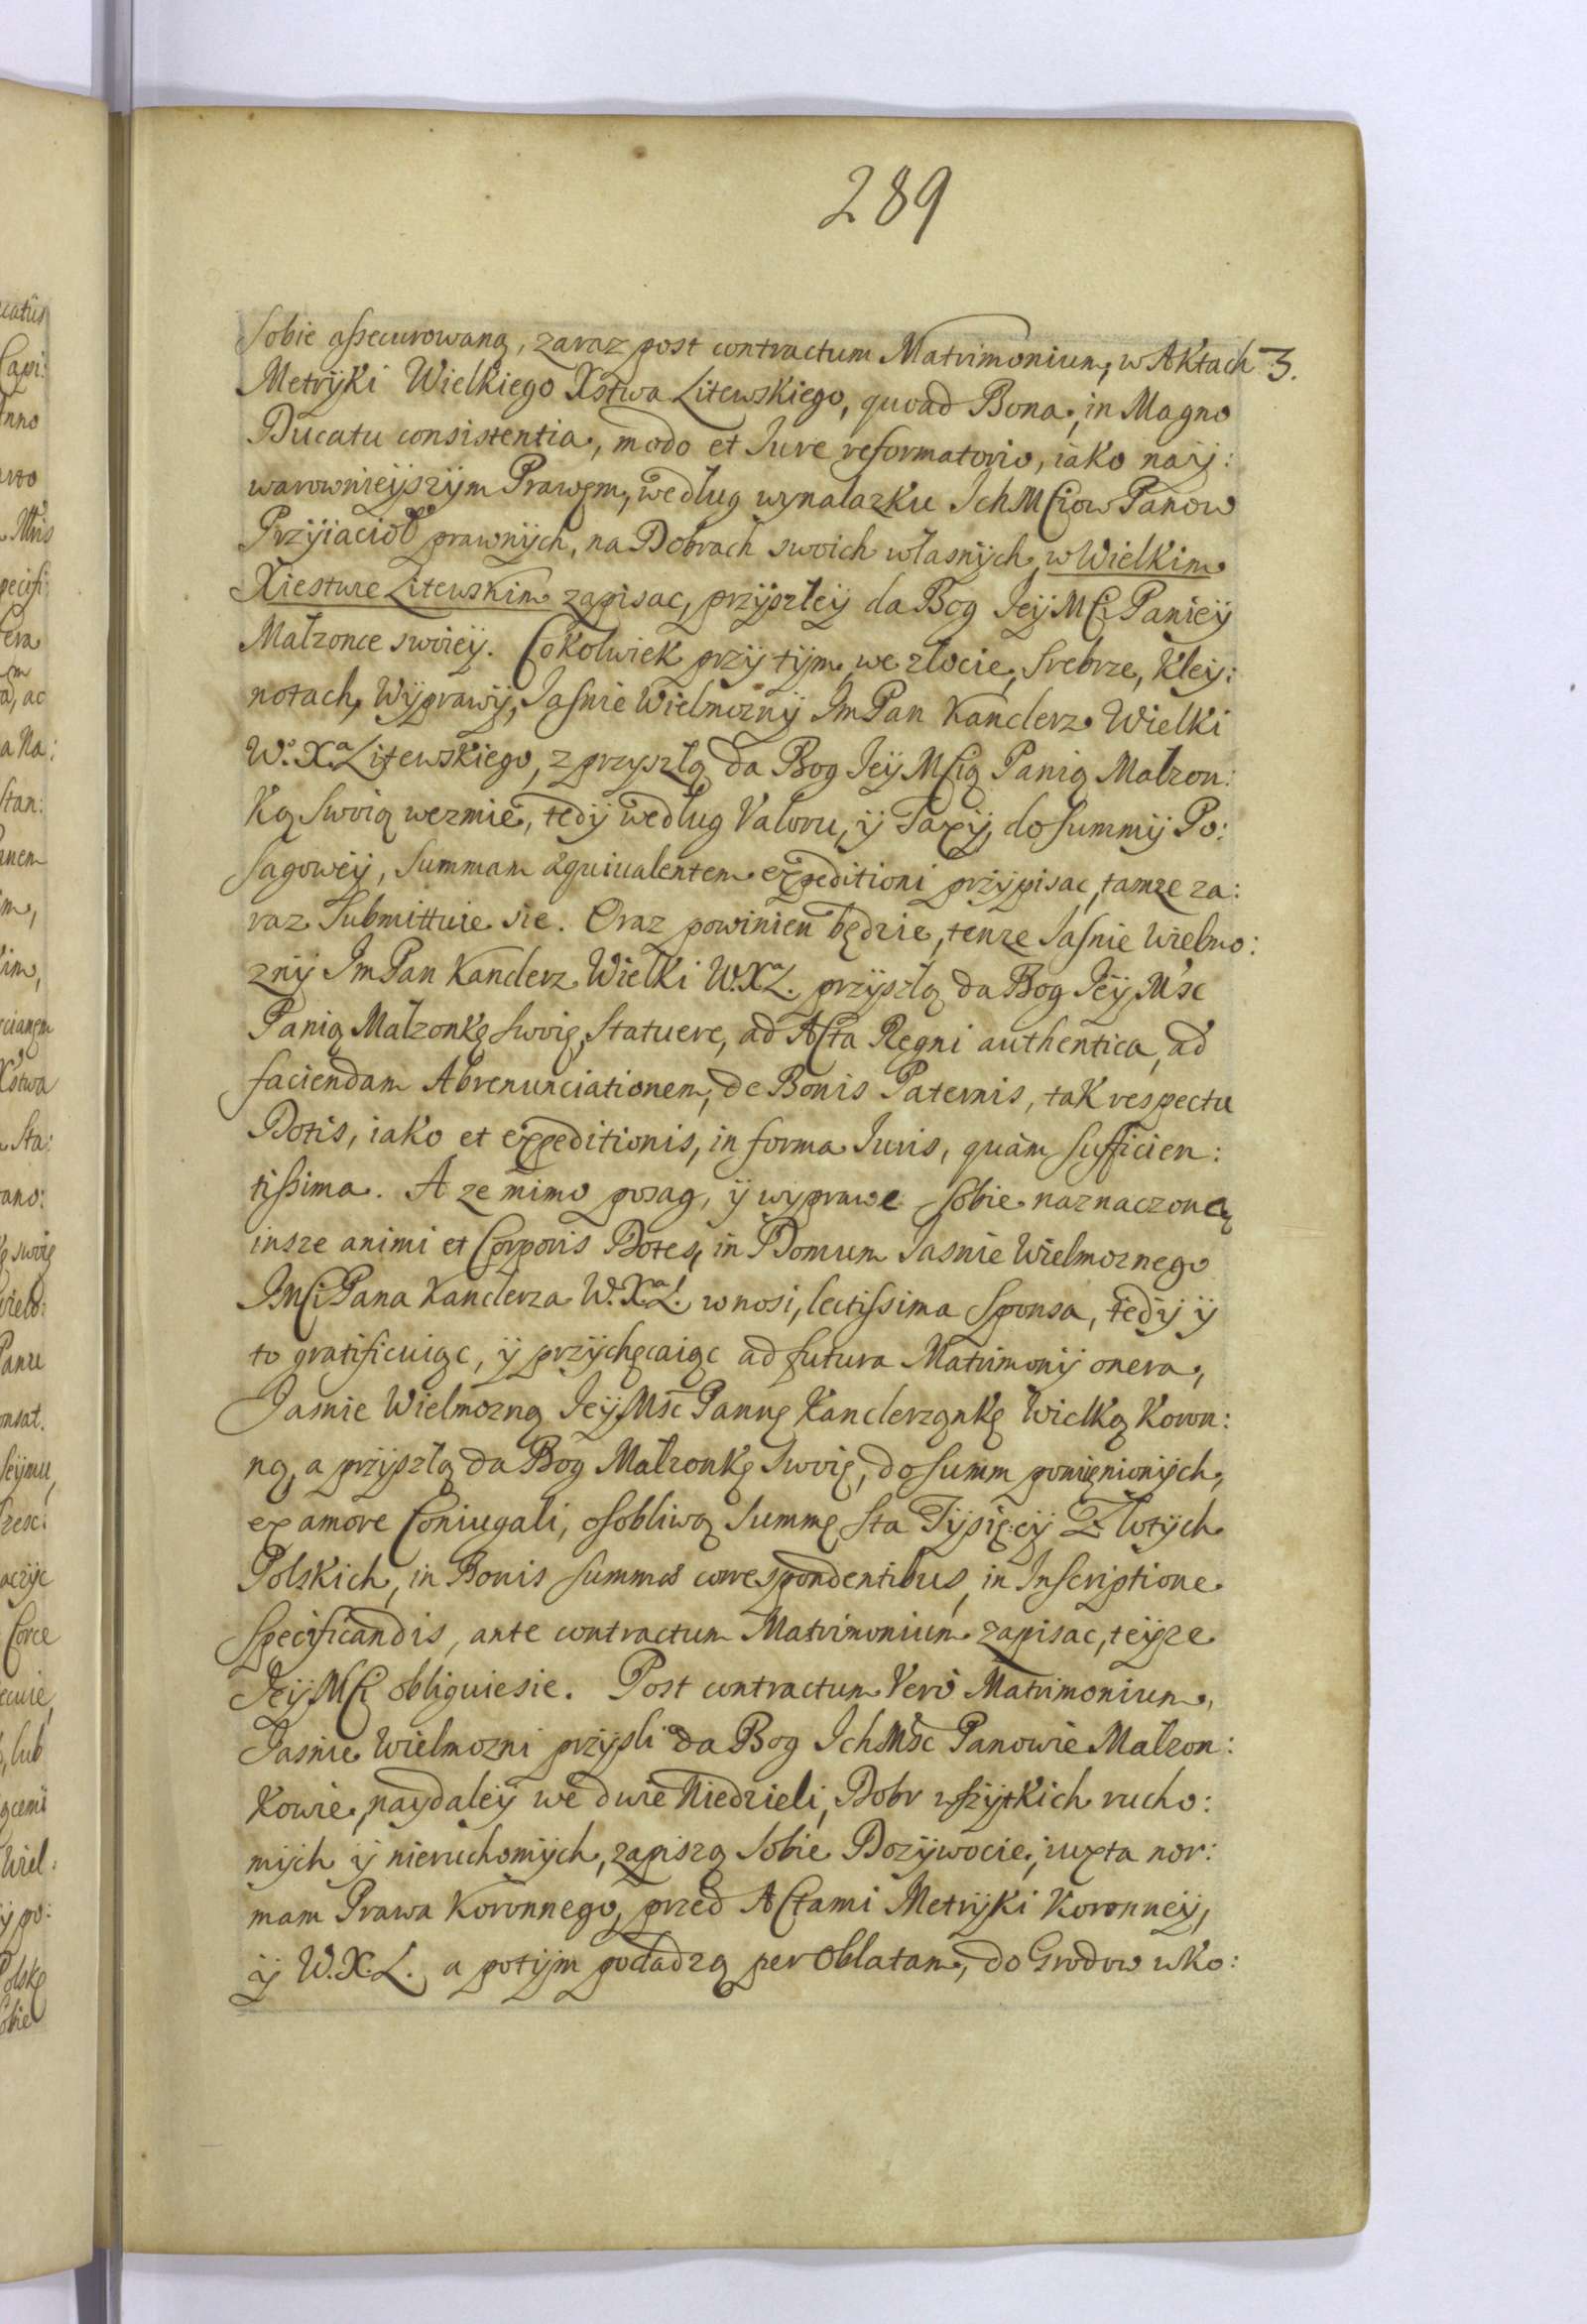 289
sobie assecurowaną, zaraz post contractum Matrimonium, w Aktach 3.
Metrÿki Wielkiego Xstwa Litewskiego, quoad Bona, in Magno
Ducatu consistentia, modo et Iure reformatorio, iako naÿ:
warownieÿszÿm Prawem, według wynalazku IchMCiow Panow
Przÿiacioł prawnÿch, na Dobrach swoich własnÿch w Wielkim
Xiestwie Litewskim zapisac, przÿszłeÿ da Bog IeÿMCi Panieÿ
Małzonce swoieÿ. Cokolwiek przÿ tÿm, we złocie, srebrze, Kleÿ:
notach, Wÿprawÿ, Jasnie Wielmoznÿ Im Pan Kanclerz Wielki
W.o X.a Litewskiego, z przyszłą da Bog IeÿMCią Panią Małzon:
Ką swoią wezmie, tedÿ według Valoru, ÿ Taxÿ, do summÿ Po:
sagoweÿ, summam æquiualentem expeditioni przÿpisac, tamze za:
raz submittuie sie. Oraz powinien będzie, tenze Jasnie Wielmo:
znÿ Im Pan Kanclerz Wielki W.X.a L. przÿszłą da Bog IeÿMsc
Panią Małzonkę swoię, statuere, ad Acta Regni authentica, ad
faciendam Abrenunciationem, de Bonis Paternis, tak respectu
Dotis, iako et expeditionis, in forma Iuris, quàm sufficien:
tissima. A ze mimo posag, ÿ wyprawe sobie naznaczoną
insze animi et Corporis Dotes, in Domum Jasnie Wielmoznego
ImCi Pana Kanclerza W.X.a L. wnosi, lectissima Sponsa, tedÿ ÿ
to gratificuiąc, ÿ przÿchęcaiąc ad futura Matrimonÿ onera,
Jasnie Wielmozną IeÿMsc Pannę Kanclerzankę Wielką Koron:
ną, a przÿszłą da Bog Małzonkę swoię, do summ pomienionÿch,
ex amore Coniugali, osobliwą summę sta Tÿsięcÿ Złotÿch
Polskich, in Bonis summæ correspondentibus, in Inscriptione
specificandis, ante contractum Matrimonium zapisac, teÿze
IeÿMCi obliguie sie. Post contractum Verò Matrimonium,
Jasnie Wielmozni przÿsli da Bog IchMsc Panowie Małzon:
Kowie, naydaleÿ we dwie Niedzieli, Dobr wszÿtkich rucho:
mÿch ÿ nieruchomÿch, zapiszą sobie Dozÿwocie, iuxta nor:
mam Prawa Koronnego, przed Actami Metrÿki Koronneÿ,
ÿ W.X.L. a potÿm podadzą per oblatam, do Grodow w Ko: